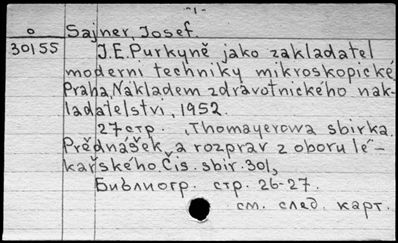 -1-
о Sajner, Josef.
30155 J.E. Purkyně jako zakladatel
moderni techniky mikroskopické
Praha, Nákladem zdravotnického nak-
ladatelstvi, 1952.
27 стр. (Thomayerowa sbirka
Prědnášek a rozprav z oboru lé-
kařského. Čis. sbir. 301,
Библиогр. стр. 26-27.
см. след. карт.